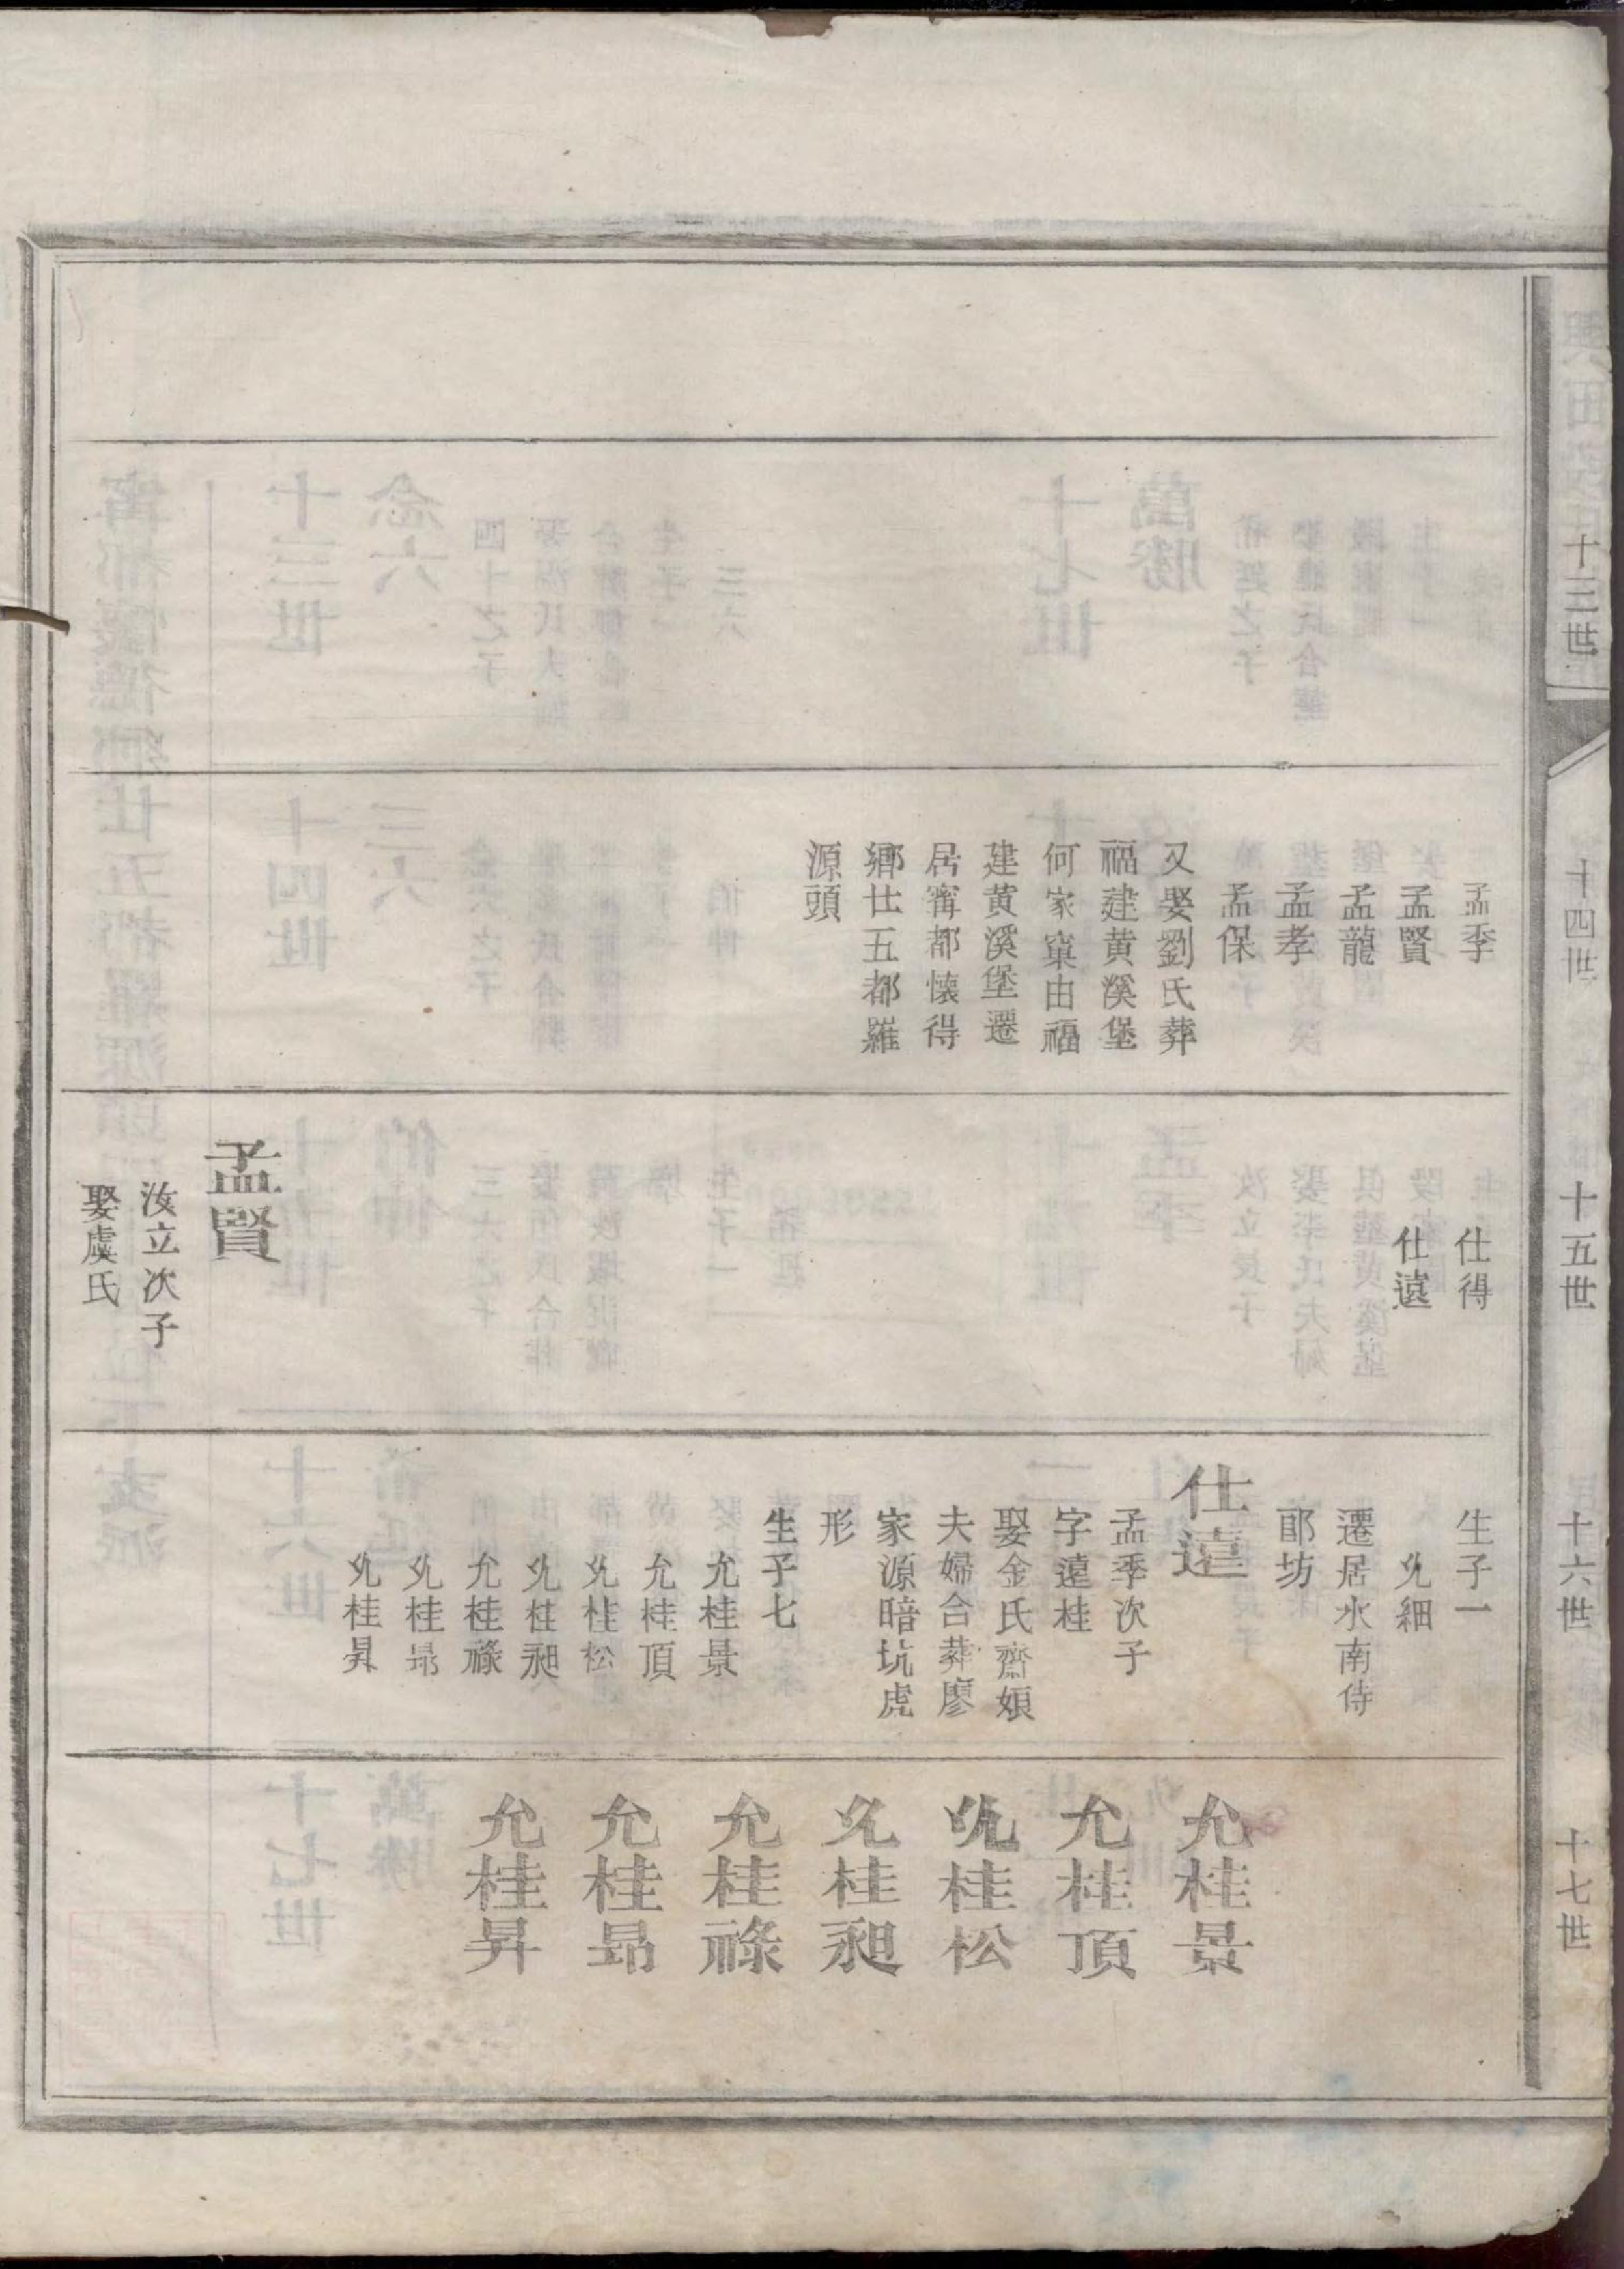 十三世
十四世
十五世
十六世
十七世
孟季
孟賢
孟龍
孟孝
孟保
又娶劉氏葬
福建黄溪堡
何家窠由福
建黄溪堡遷
居甯都懐得
鄉廿五都羅
源頭
仕得
仕遠
孟賢
汝立次子
娶虞氏
生子一
允細
遷居水南侍
郎坊
仕遠
孟季次子
字遠桂
娶金氏齋娘
夫婦合葬廖
家源暗坑虎
形
生子七
允桂景
允桂頂
允桂松
允桂昶
允桂祿
允桂昂
允桂昇
允桂景
允桂頂
允桂松
允桂昶
允桂祿
允桂昂
允桂昇